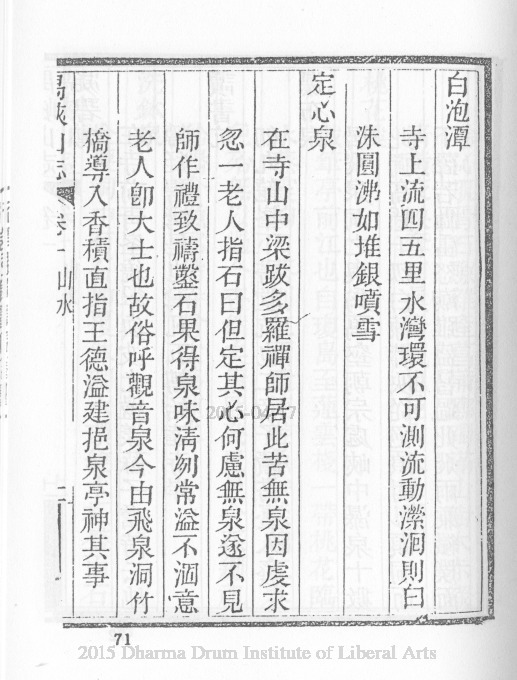 白泡潭
寺上流四五里水灣環不可測流動瀠洄則白
洙圓沸如堆銀噴雪
定心泉
在寺山中梁跋多羅禪師居此苦無泉因虔求
忽一老人指石曰但定其心何慮無泉遂不見
師作禮致禱鑿石果得泉味清冽常溢不涸意
老人卽大士也故俗呼觀音泉今由飛泉洞竹
橋導入香積直指王德溢建挹泉亭神其事
禺峽山志 卷一 山水
71
2015 Dharma Drum Institute of Liberal Arts